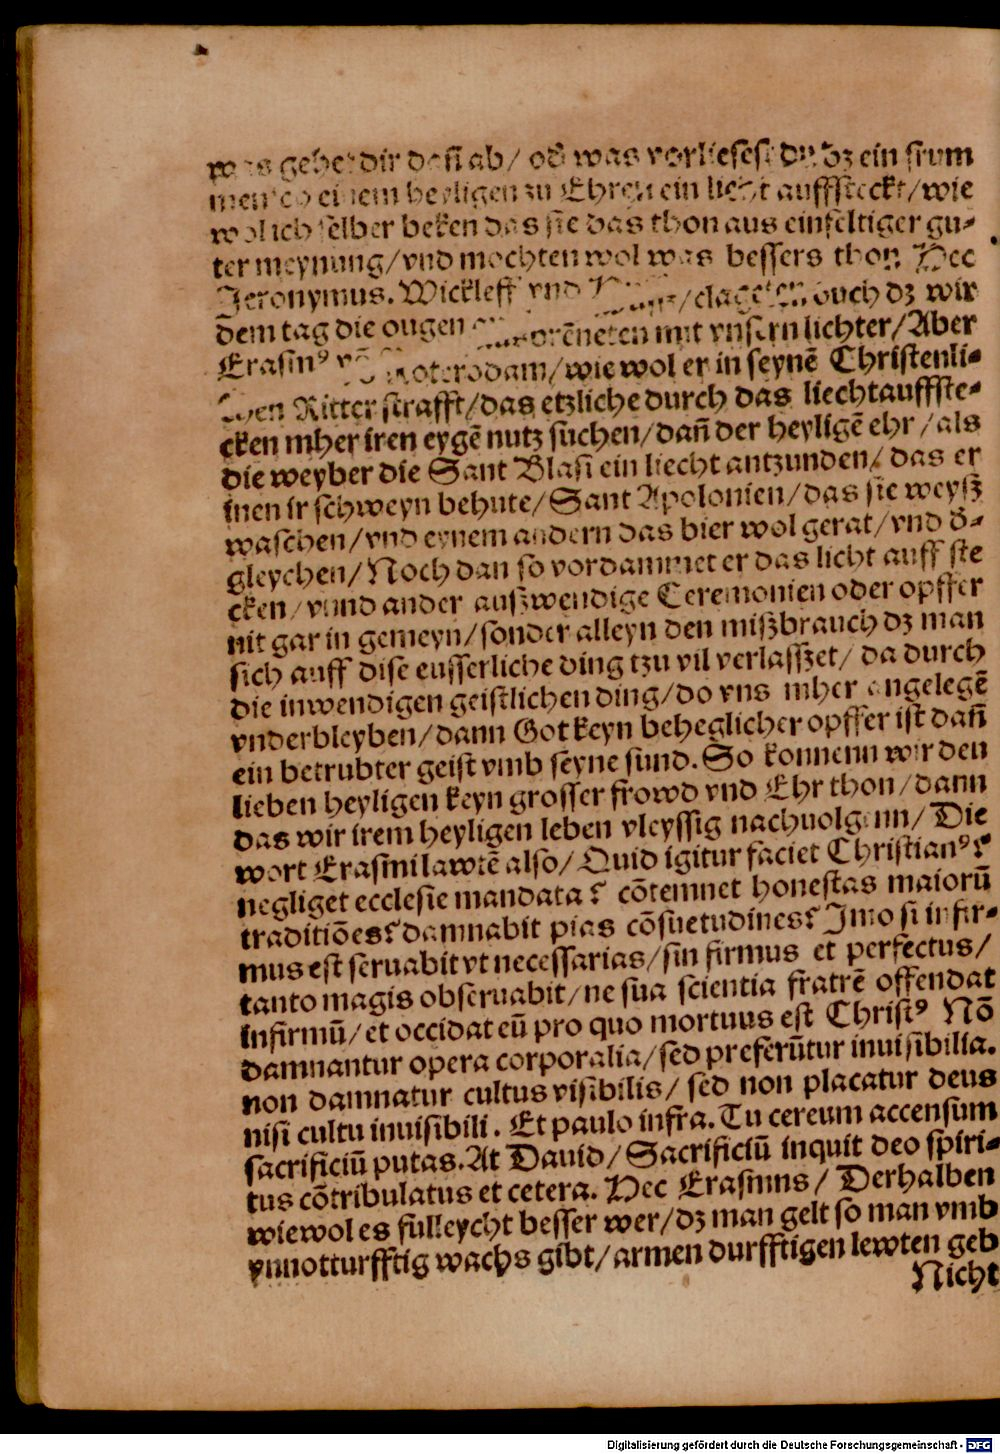 was gehet dir dañ ab/ od̄ was vorliesest du dz ein frum
mensch einem heyligen zu Ehren ein liecht auffsteckt/wie
wol ich selber beken das sie das thon aus einfeltiger gu-
ter meynung/vnd mochten wol was bessers thon Hec
Jeronymus. Wickleff vnd /clageten ouch dz wir
dem tag die ougen mit vnsern lichter/Aber
Erasmꝰ vō Roterodam/wie wol er in seynē Christenli-
chen Ritter strafft/das etzliche durch das liechtauffste-
cken mher iren eygē nutz suchen/dañ der heyligē ehr/als
die weyber die Sant Blasi ein liecht antzunden/das er
inen ir schweyn behute/Sant Apolonien/das sie weysz
waschen/vnd eynem andern das bier wol gerat/vnd d̄-
gleychen/Noch dan so vordammet er das licht auff ste
cken/vnnd ander auszwendige Ceremonien oder opffer
nit gar in gemeyn/sonder alleyn den miszbrauch dz man
sich auff dise eusserliche ding tzu vil verlasszet/ da durch
die inwendigen geistlichen ding/do vns mher angelegē
vnderbleyben/dann Got keyn beheglicher opffer ist dañ
ein betrubter geist vmb seyne sund. So konnenn wir den
lieben heyligen keyn grosser frowd vnd Ehr thon/dann
das wir irem heyligen leben vleyssig nachuolgenn/ Die
wort Erasmi lawtē also/ Quid igitur faciet Christianꝰ?
negliget ecclesie mandata? cōtemnet honestas maiorū
traditiōes? damnabit pias cōsuetudines? Jmo si infir-
mus est seruabit vt necessarias/sin firmus et perfectus/
tanto magis obseruabit/ne sua scientia fratrē offendat
infirmū/et occidat eū pro quo mortuus est Christꝰ Nō
damnantur opera corporalia/sed preferūtur inuisibilia.
non damnatur cultus visibilis/ sed non placatur deus
nisi cultu inuisibili. Et paulo infra. Tu cereum accensum
sacrificiū putas. At Dauid/ Sacrificiū inquit deo spiri-
tus cōtribulatus et cetera. Hec Erasmus/ Derhalben
wiewol es fulleycht besser wer/dz man gelt so man vmb
vnnotturfftig wachs gibt/armen durfftigen lewten geb
Nicht
Digitalisierung gefördert durch die Deutsche Forschungsgemeinschaft - DFG